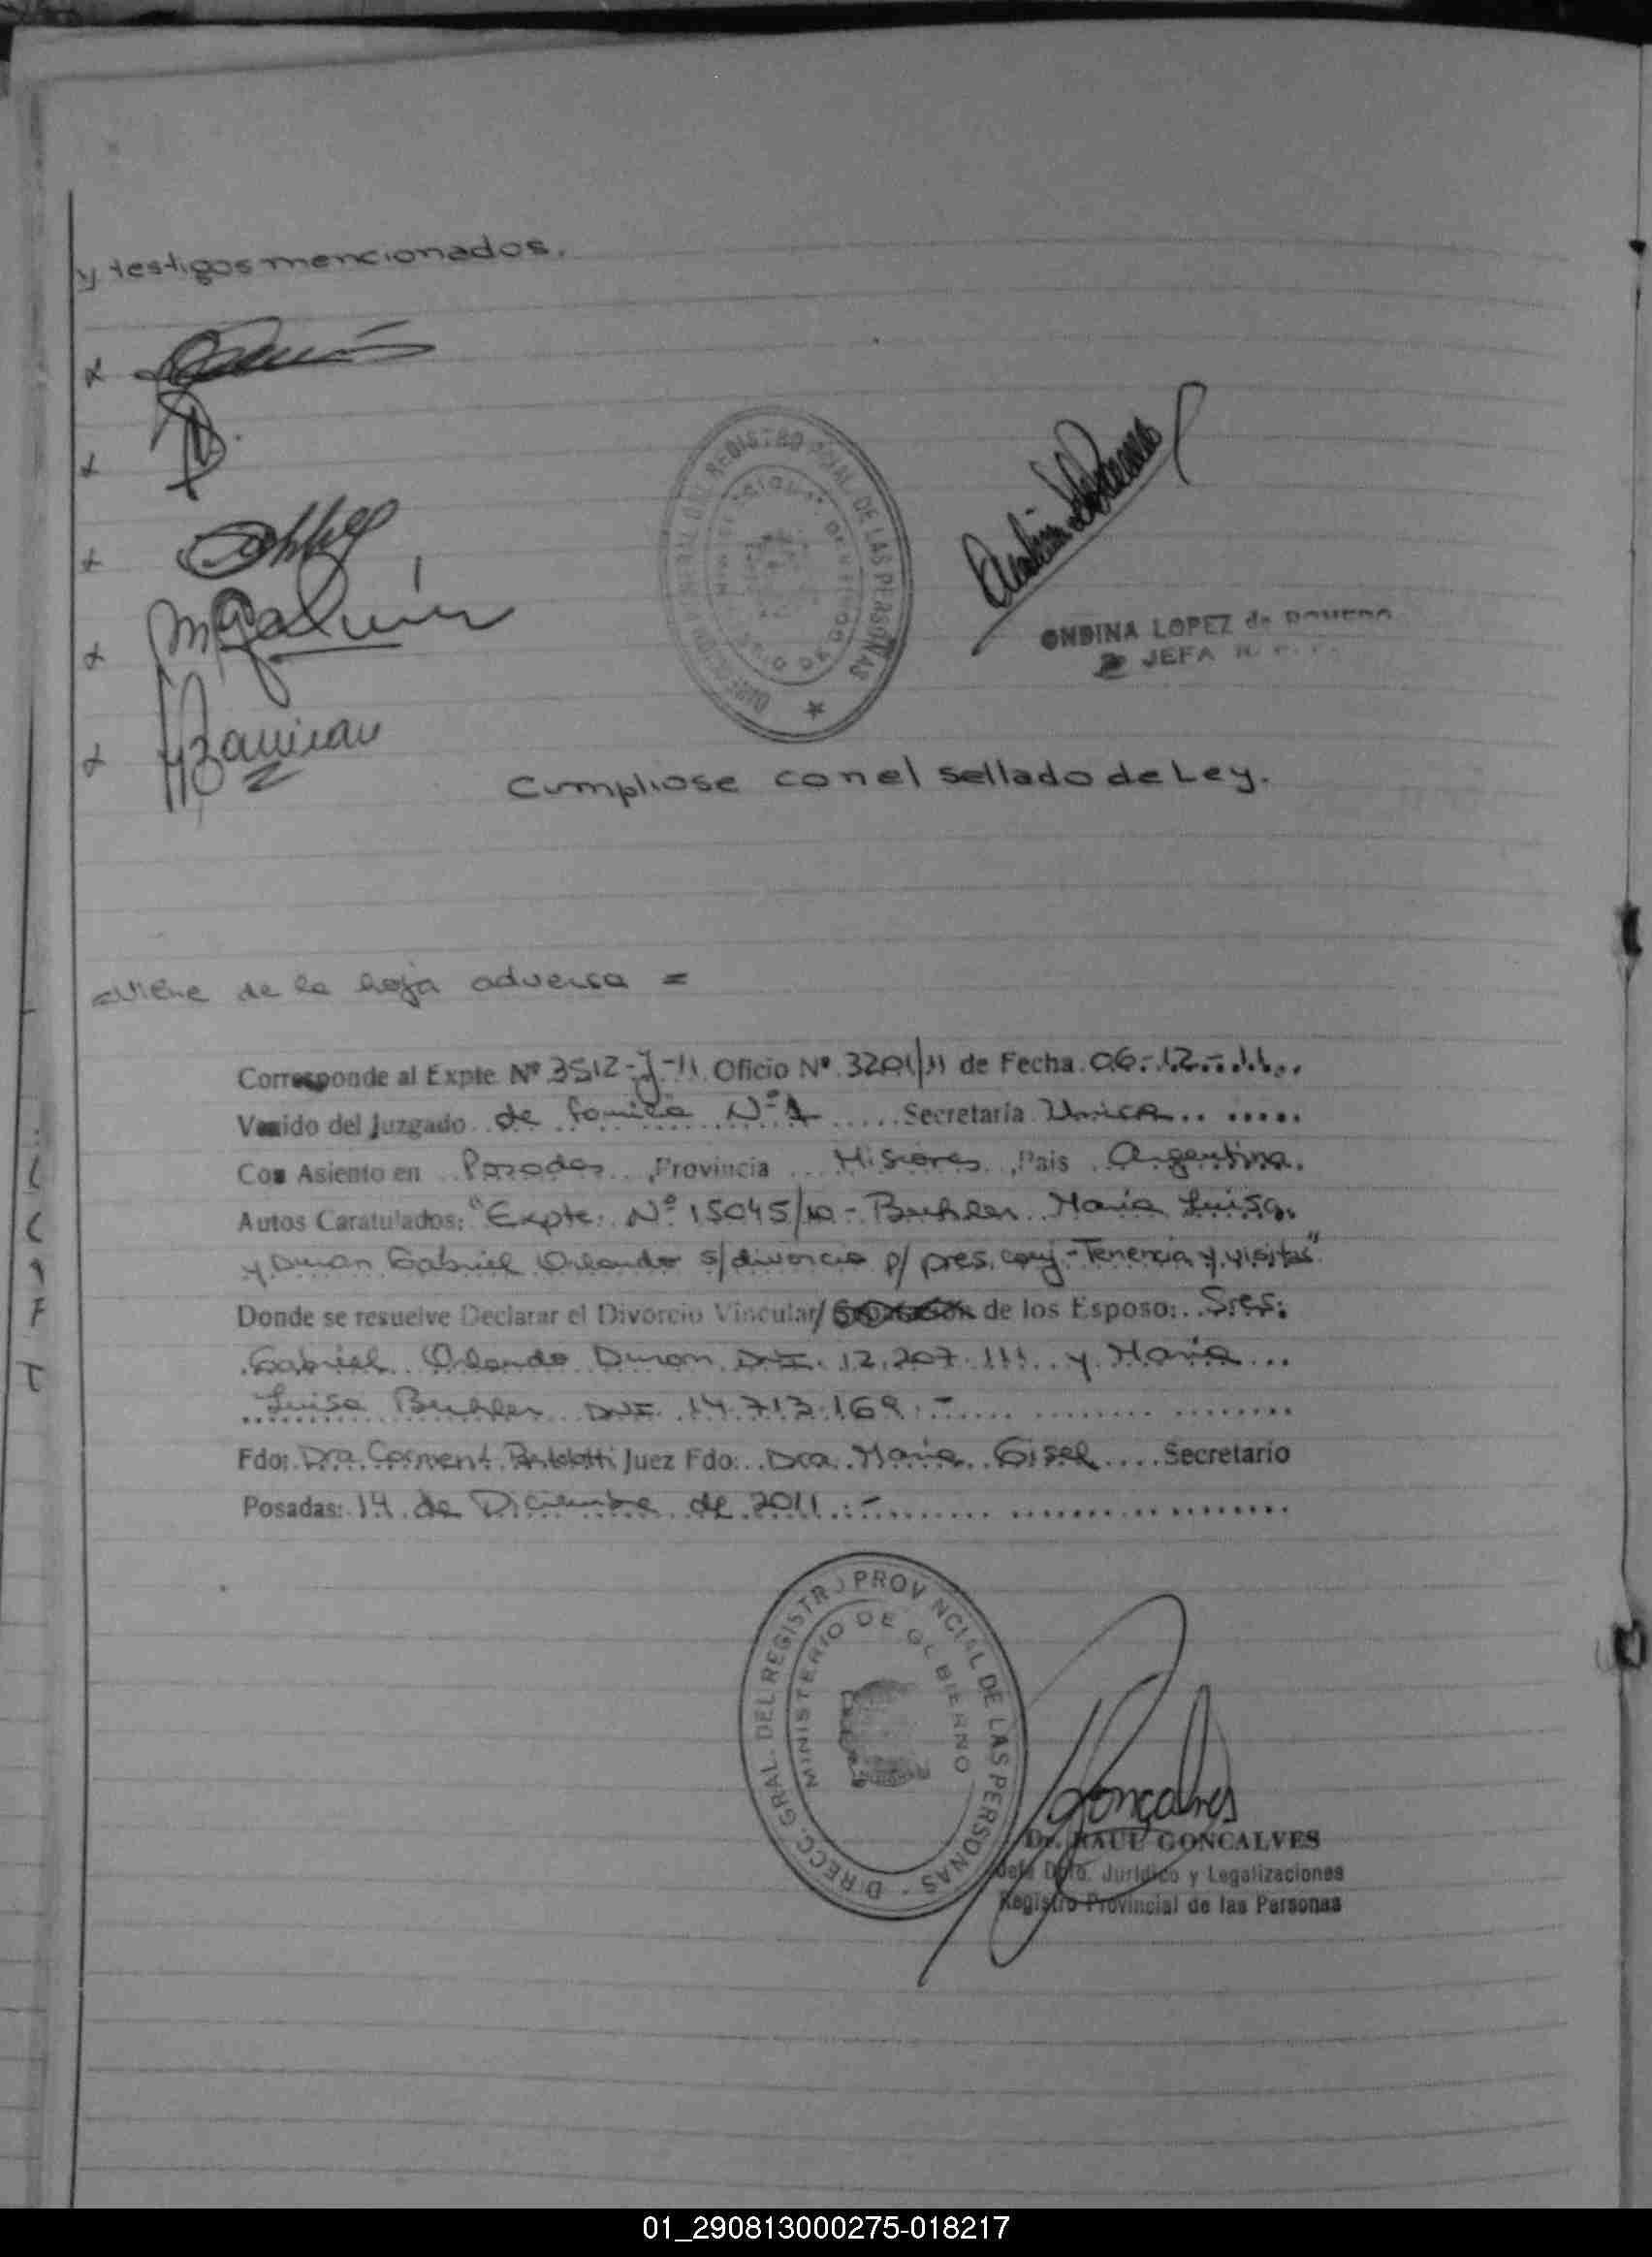 y testigos mencionados.
DIRECCION GENERAL DEL REGISTRO PCIAL. DE LAS PERSONAS
ONDINA LOPEZ de ROMERO
JEFA
Cumpliose con el sellado de Ley.
=Viene de la hoja adversa =
Corresponde al Expte. Nº 3512-J-11 Oficio Nº 3201/11 de Fecha 06-12-11
Venido del Juzgado de familia Nº 1 Secretaría Unica
Con Asiento en Posadas, Provincia Misiones, Pais Argentina.
Autos Caratulados: "Expte. Nº 15045/10 - Buhler Maria Luisa
y Duran Gabriel Orlando s/divorcio p/ pres. conj - Tenencia y visitas"
Donde se resuelve Declarar el Divorcio Vincular/ de los Esposo: Sres:
Gabriel Orlando Duran DNI. 12.207.111 y Maria
Luisa Buhler DNI 14.713.169.-
Fdo: Dra Juez Fdo: Dra. Maria Gisel Secretario
Posadas: 14 de Diciembre de 2011.-
DIRECC. GRAL. DEL REGISTRO PROVINCIAL DE LAS PERSONAS
MINISTERIO DE GOBIERNO
Gonçalves
Dr. RAUL GONCALVES
Jefe Dpto. Jurídico y Legalizaciones
Registro Provincial de las Personas
01_290813000275-018217